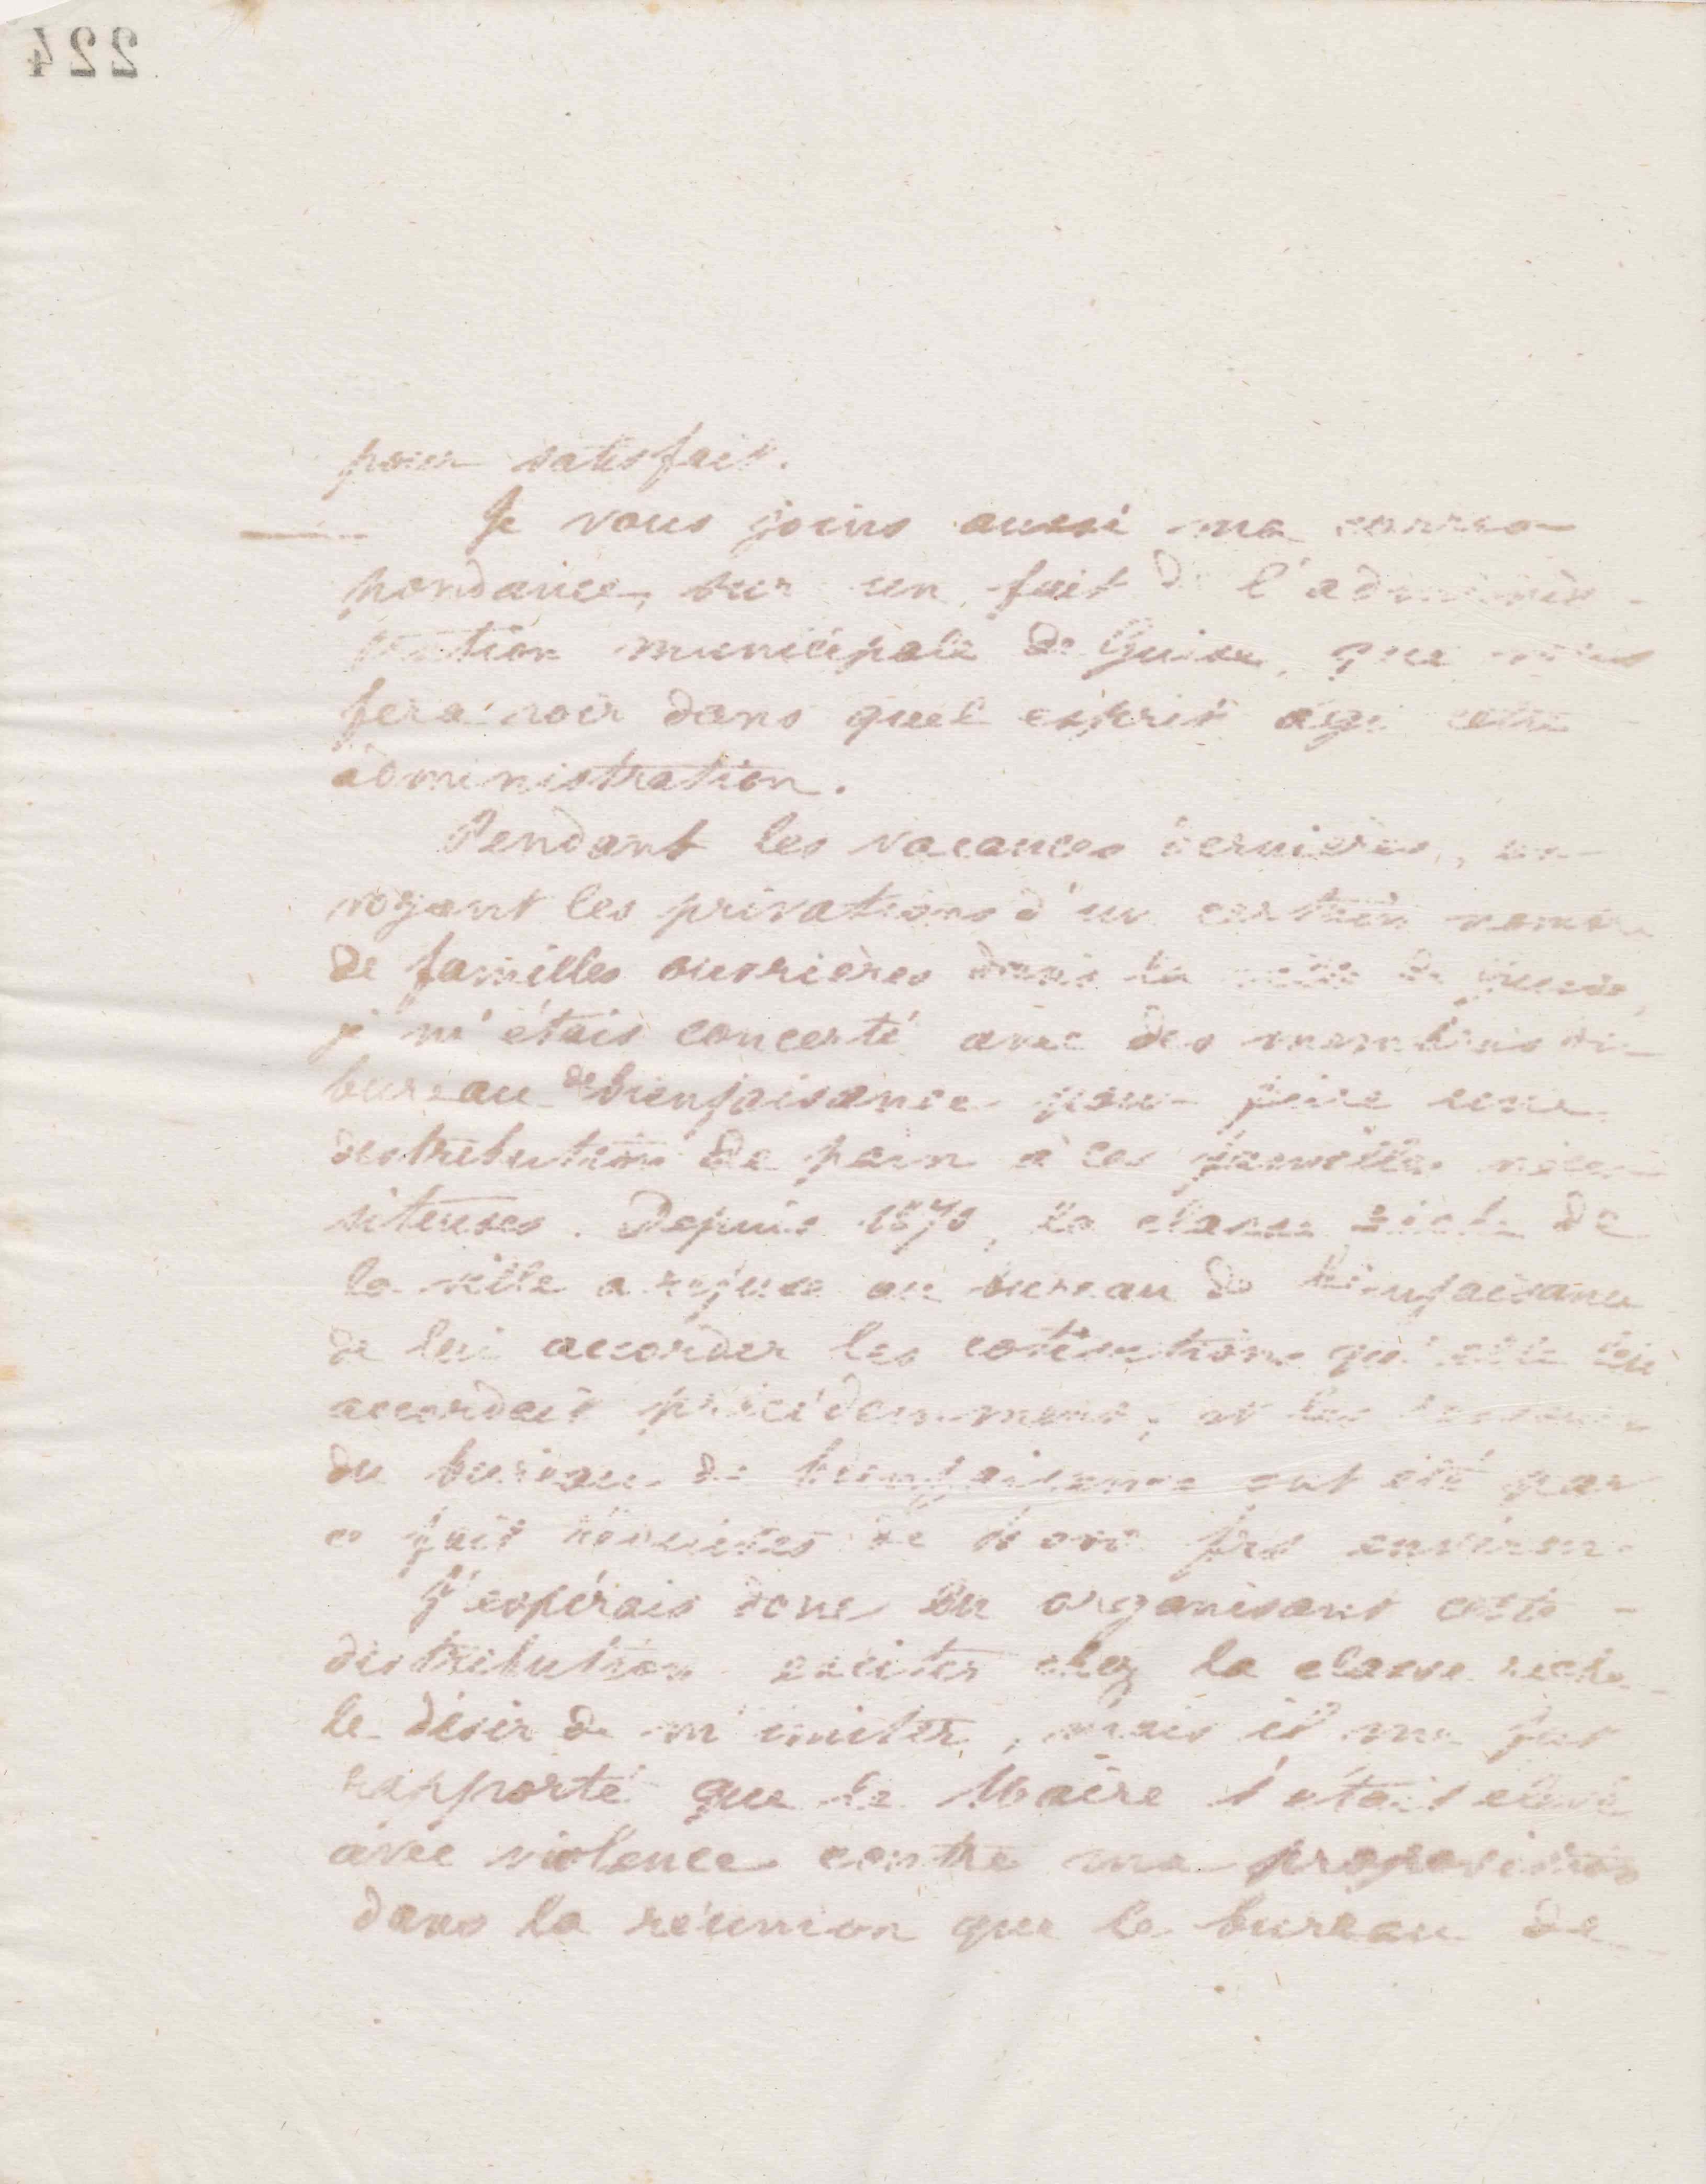 224
pour satisfait.
Je vous joins aussi ma corres-
pondance, sur un fait de l'adminis-
tration municipale de Guise, que vous
fera voir dans quel esprit agi cette
administration.
Pendant les vacances dernières, en
voyant les privations d'un certain nombre
de familles ouvrières dans la ville de Guise,
je m'étais concerté avec des membres du
bureau de bienfaisance pour faire une
distribution de pain à ces familles néces-
siteuses. Depuis 1870, la classe riche de
la ville a refusé au bureau de bienfaisance
de lui accorder les cotisations qu'elle lui
accordait précédemment, et les
du bureau de bienfaisance ont été par
ce fait réduites de frs environ.
J'espérais donc en organisant cette
distribution exciter chez la classe riche
le désir de m'imiter, mais il me fut
rapporté que le Maire s'était élevé
avec violence contre ma proposition
dans la réunion que le bureau de